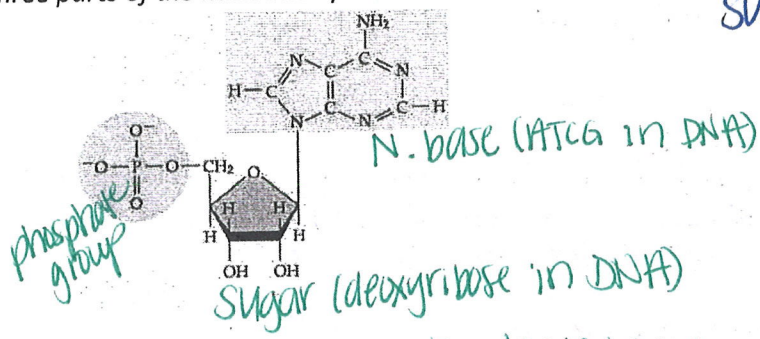 parts of the
SU
NH₂
N C N
C
H–C
C C–H
N N
O⁻
⁻O–P–O–CH₂ O
O
H H
H H
OH OH
N. base (ATCG in DNA)
phosphate
group
sugar (deoxyribose in DNA)